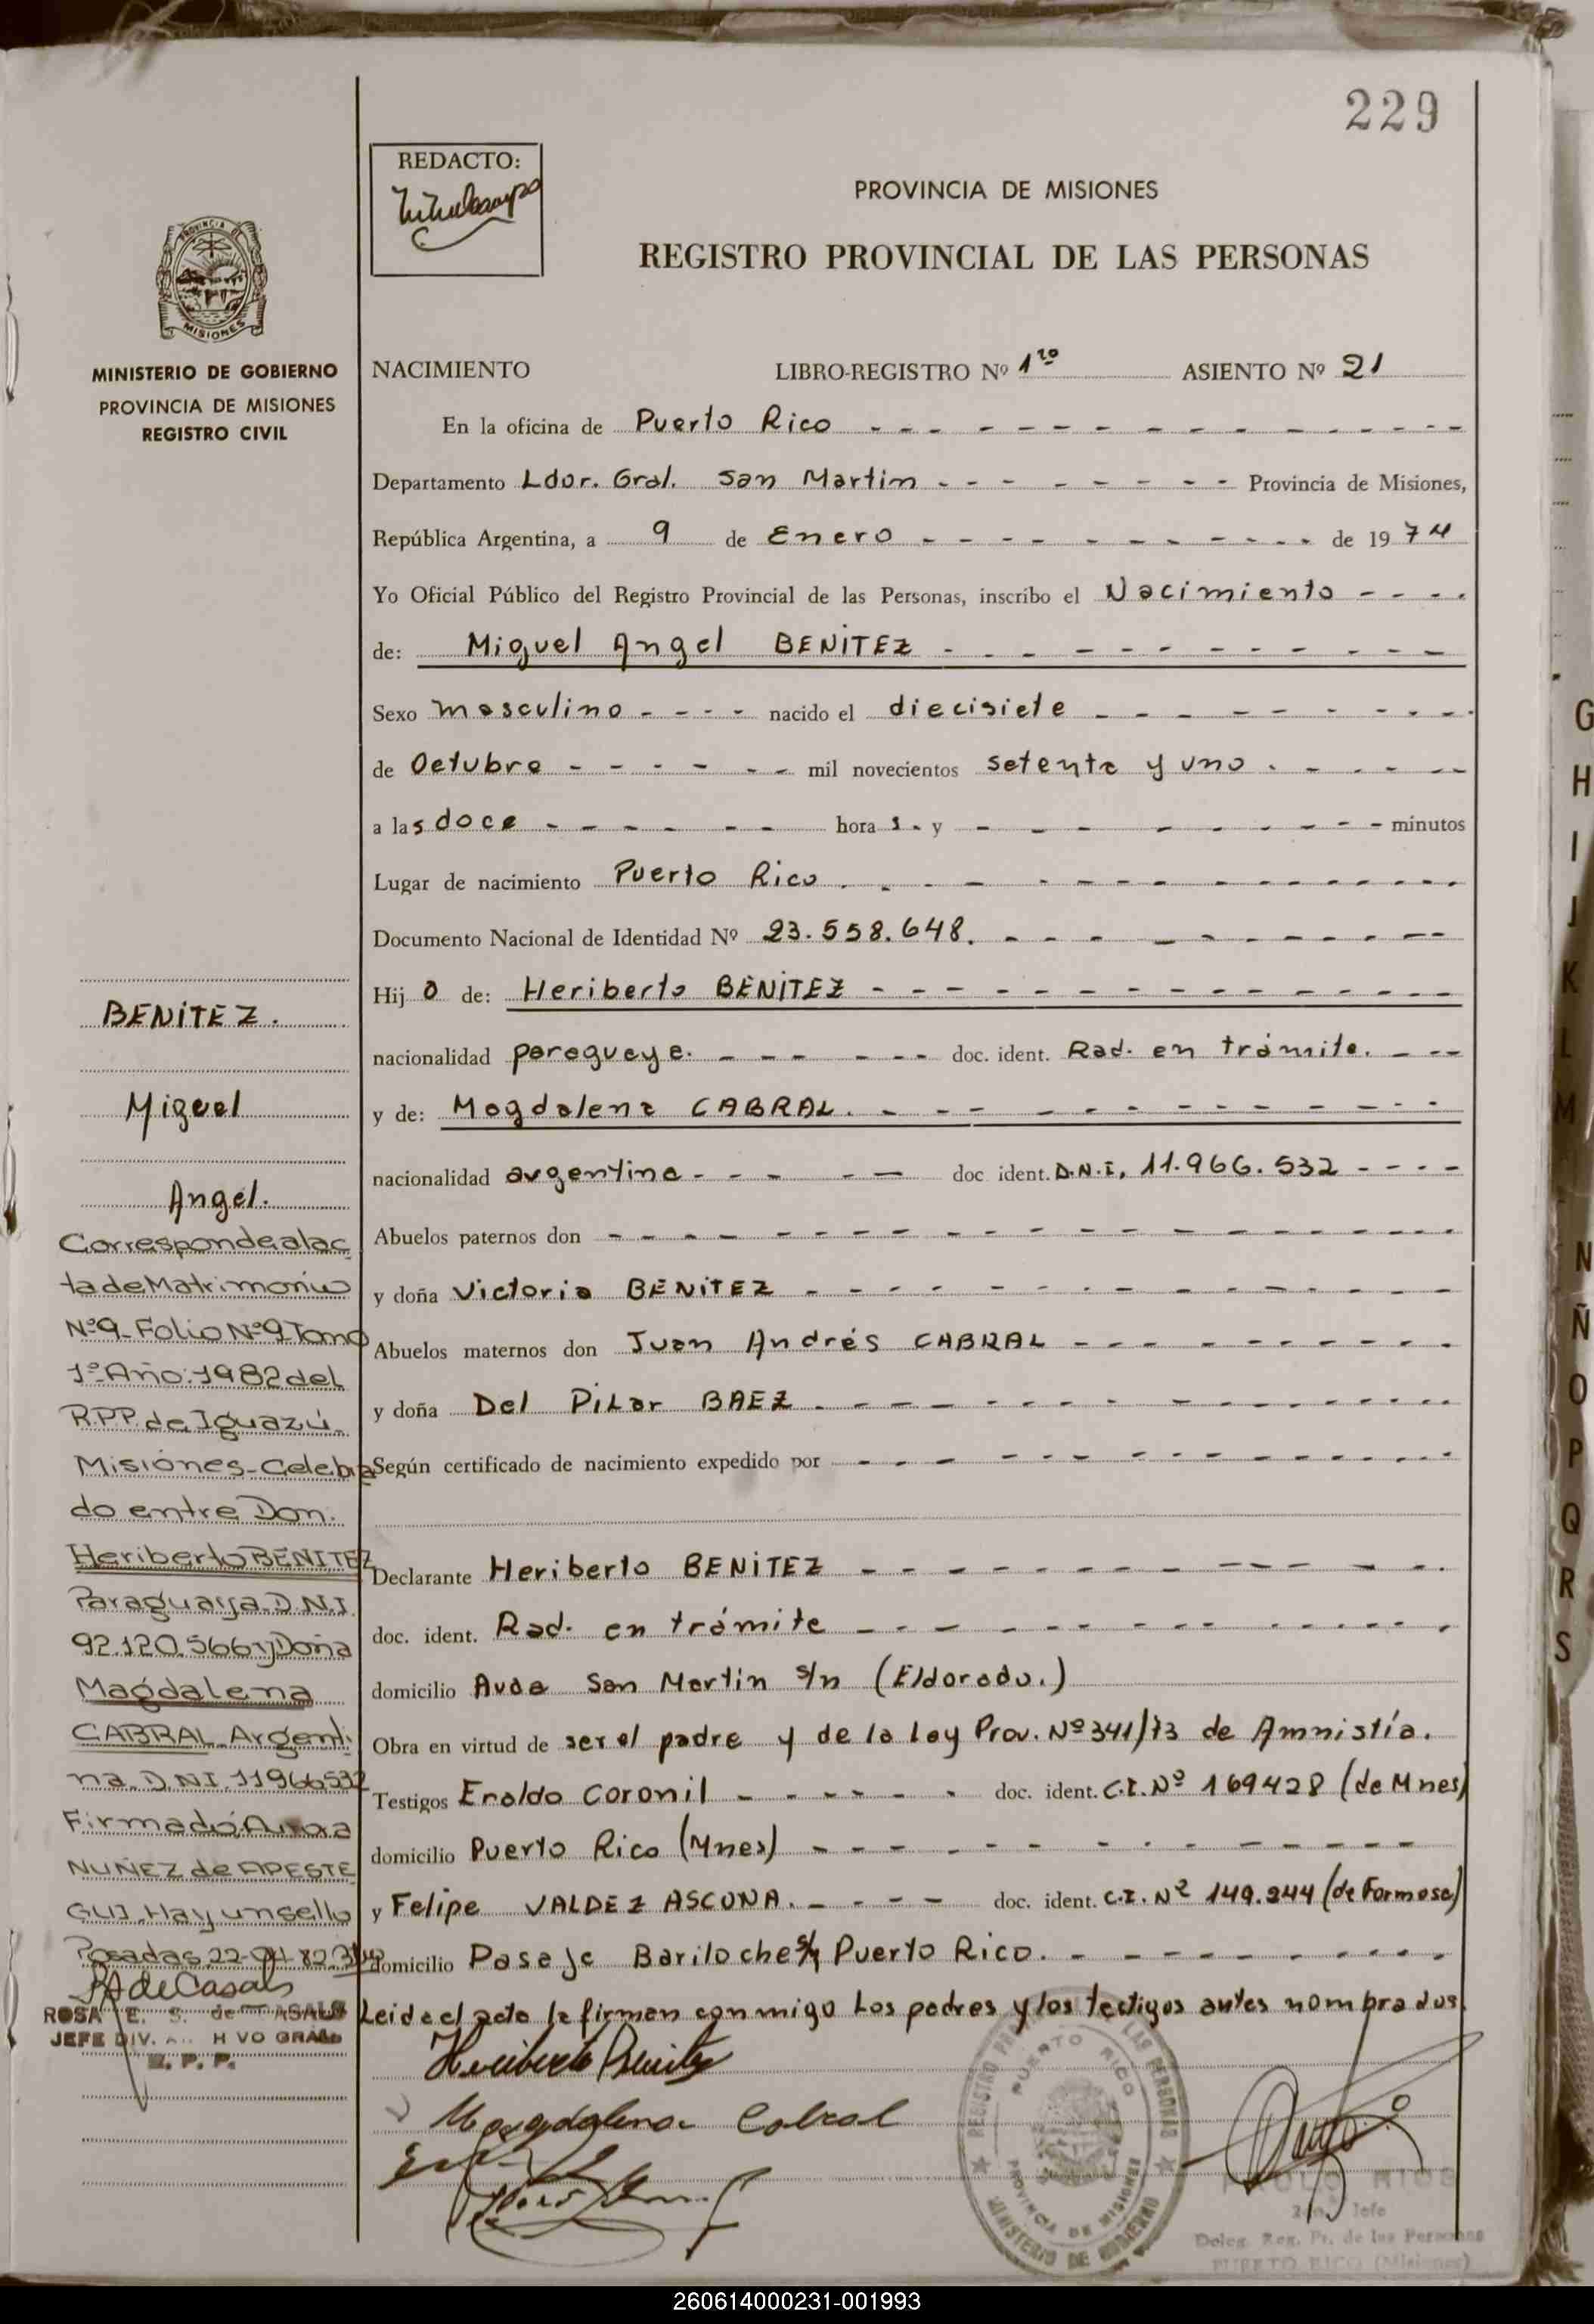 229
REDACTO:
PROVINCIA DE MISIONES
REGISTRO PROVINCIAL DE LAS PERSONAS
PROVINCIA
MISIONES
MINISTERIO DE GOBIERNO
PROVINCIA DE MISIONES
REGISTRO CIVIL
NACIMIENTO LIBRO-REGISTRO Nº 1ro ASIENTO Nº 21
En la oficina de Puerto Rico
Departamento Ldor. Gral. San Martin Provincia de Misiones,
República Argentina, a 9 de Enero de 1974
Yo Oficial Público del Registro Provincial de las Personas, inscribo el Nacimiento
de: Miguel Angel BENITEZ
Sexo masculino nacido el diecisiete
de Octubre mil novecientos setenta y uno
a las doce horas y minutos
Lugar de nacimiento Puerto Rico
Documento Nacional de Identidad Nº 23.558.648.
Hijo de: Heriberto BENITEZ
nacionalidad paraguaya. doc. ident. Rad. en trámite.
y de: Magdalena CABRAL.
nacionalidad argentina doc ident. D.N.I. 11.966.532
Abuelos paternos don
y doña Victoria BENITEZ
Abuelos maternos don Juan Andrés CABRAL
y doña Del Pilar BAEZ
Según certificado de nacimiento expedido por
Declarante Heriberto BENITEZ
doc. ident. Rad. en trámite
domicilio Avda San Martin s/n (Eldorado.)
Obra en virtud de ser el padre y de la Ley Prov. Nº 341/73 de Amnistía.
Testigos Eraldo Coronil doc. ident. C.I. Nº 169428 (de Mnes)
domicilio Puerto Rico (Mnes)
y Felipe VALDEZ ASCONA. doc. ident. C.I. Nº 149.244 (de Formosa)
domicilio Pasaje Bariloche s/n Puerto Rico.
Leida el acta la firman conmigo los padres y los testigos antes nombrados
Heriberto Benitez
Magdalena Cabral
BENITEZ.
Miguel
Angel.
Corresponde a lac
ta de Matrimonio
Nº 9- Folio Nº 9 Tomo
1º- Año: 1982 del
R.P.P. de Iguazú.
Misiones- Celebra
do entre Don.
Heriberto BENITEZ
Paraguaya. D.N.I.
92.120.566 y Doña
Magdalena
CABRAL. Argenti
na. D.N.I. 11966532
Firmado
NUÑEZ de APESTE
GUI. Hay un sello
Posadas, 22-04-82.
RA de Casals
ROSA E. S. de CASALS
JEFE DIV. ARCHIVO GRAL.
R. P. P.
REGISTRO PROVINCIAL DE LAS PERSONAS
PUERTO RICO
PROVINCIA DE MISIONES
MINISTERIO DE GOBIERNO
Jefe
Deleg. Reg. Pr. de las Personas
PUERTO RICO (Misiones)
G
H
I
J
K
L
M
N
Ñ
O
P
Q
R
S
260614000231-001993